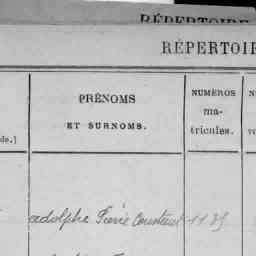 RÉPERTOIRE
RÉPERTOI
PRÉNOMS
ET SURNOMS.
NUMÉROS
ma-
tricules.
de.]
adolphe Pierre Constant 1189